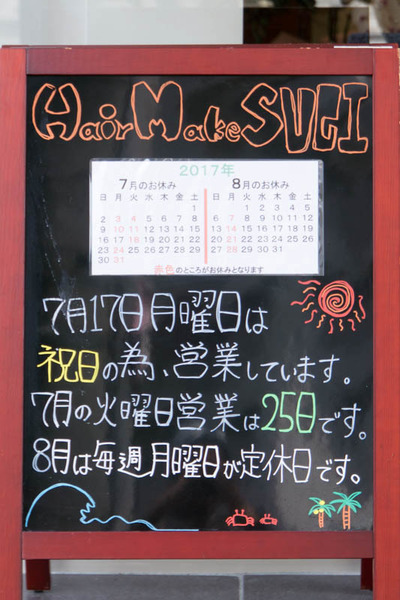 Hair Make SUGI
2017年
7月のお休み
日 月 火 水 木 金 土
1
2 3 4 5 6 7 8
9 10 11 12 13 14 15
16 17 18 19 20 21 22
23 24 25 26 27 28 29
30 31
8月のお休み
日 月 火 水 木 金 土
1 2 3 4 5
6 7 8 9 10 11 12
13 14 15 16 17 18 19
20 21 22 23 24 25 26
27 28 29 30 31
赤色のところがお休みとなります
7月17日月曜日は
祝日の為、営業しています。
7月の火曜日営業は25日です。
8月は毎週月曜日が定休日です。